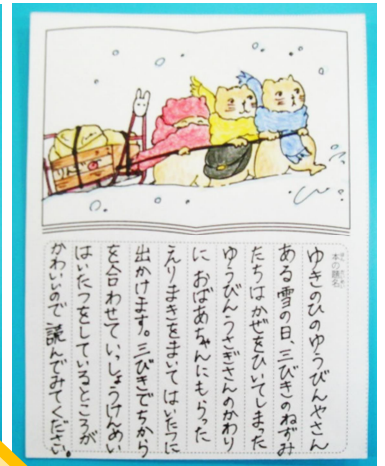 本の題名
ゆきのひのゆうびんやさん
ある雪の日、三びきのねずみ
たちはかぜをひいてしまった
ゆうびんうさぎさんのかわり
に おばあちゃんにもらった
えりまきをまいてはいたつに
出かけます。三びきでちから
を合わせていっしょうけんめい
はいたつをしているところが
かわいいので 読んでみてください。